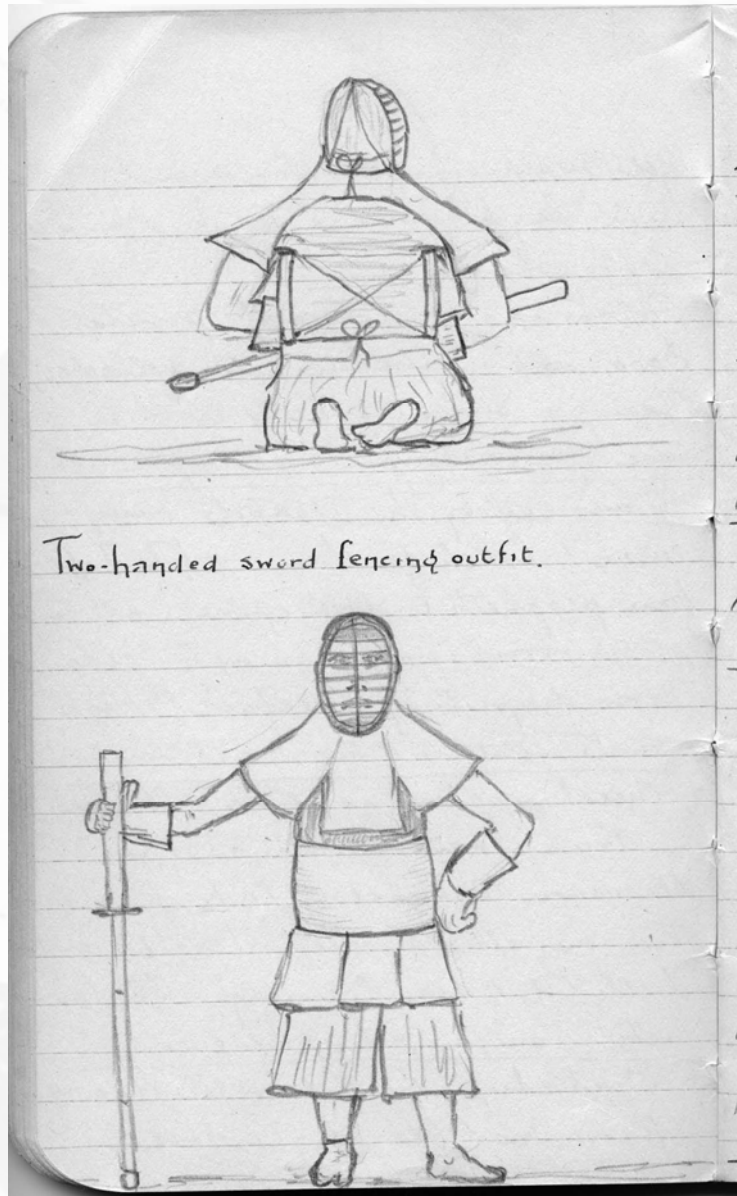 Two-handed sword fencing outfit.